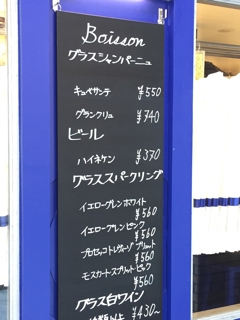 Boisson
グラスシャンパーニュ
キュベサンテ ¥550
グランクリュ ¥740
ビール
ハイネケン ¥370
グラススパークリング
イエローグレンホワイト
¥560
イエローグレンピンク
¥560
プロセッコトレヴィーゾブリュット
¥560
モスカートスプリットピンク
¥560
グラス白ワイン
¥430~